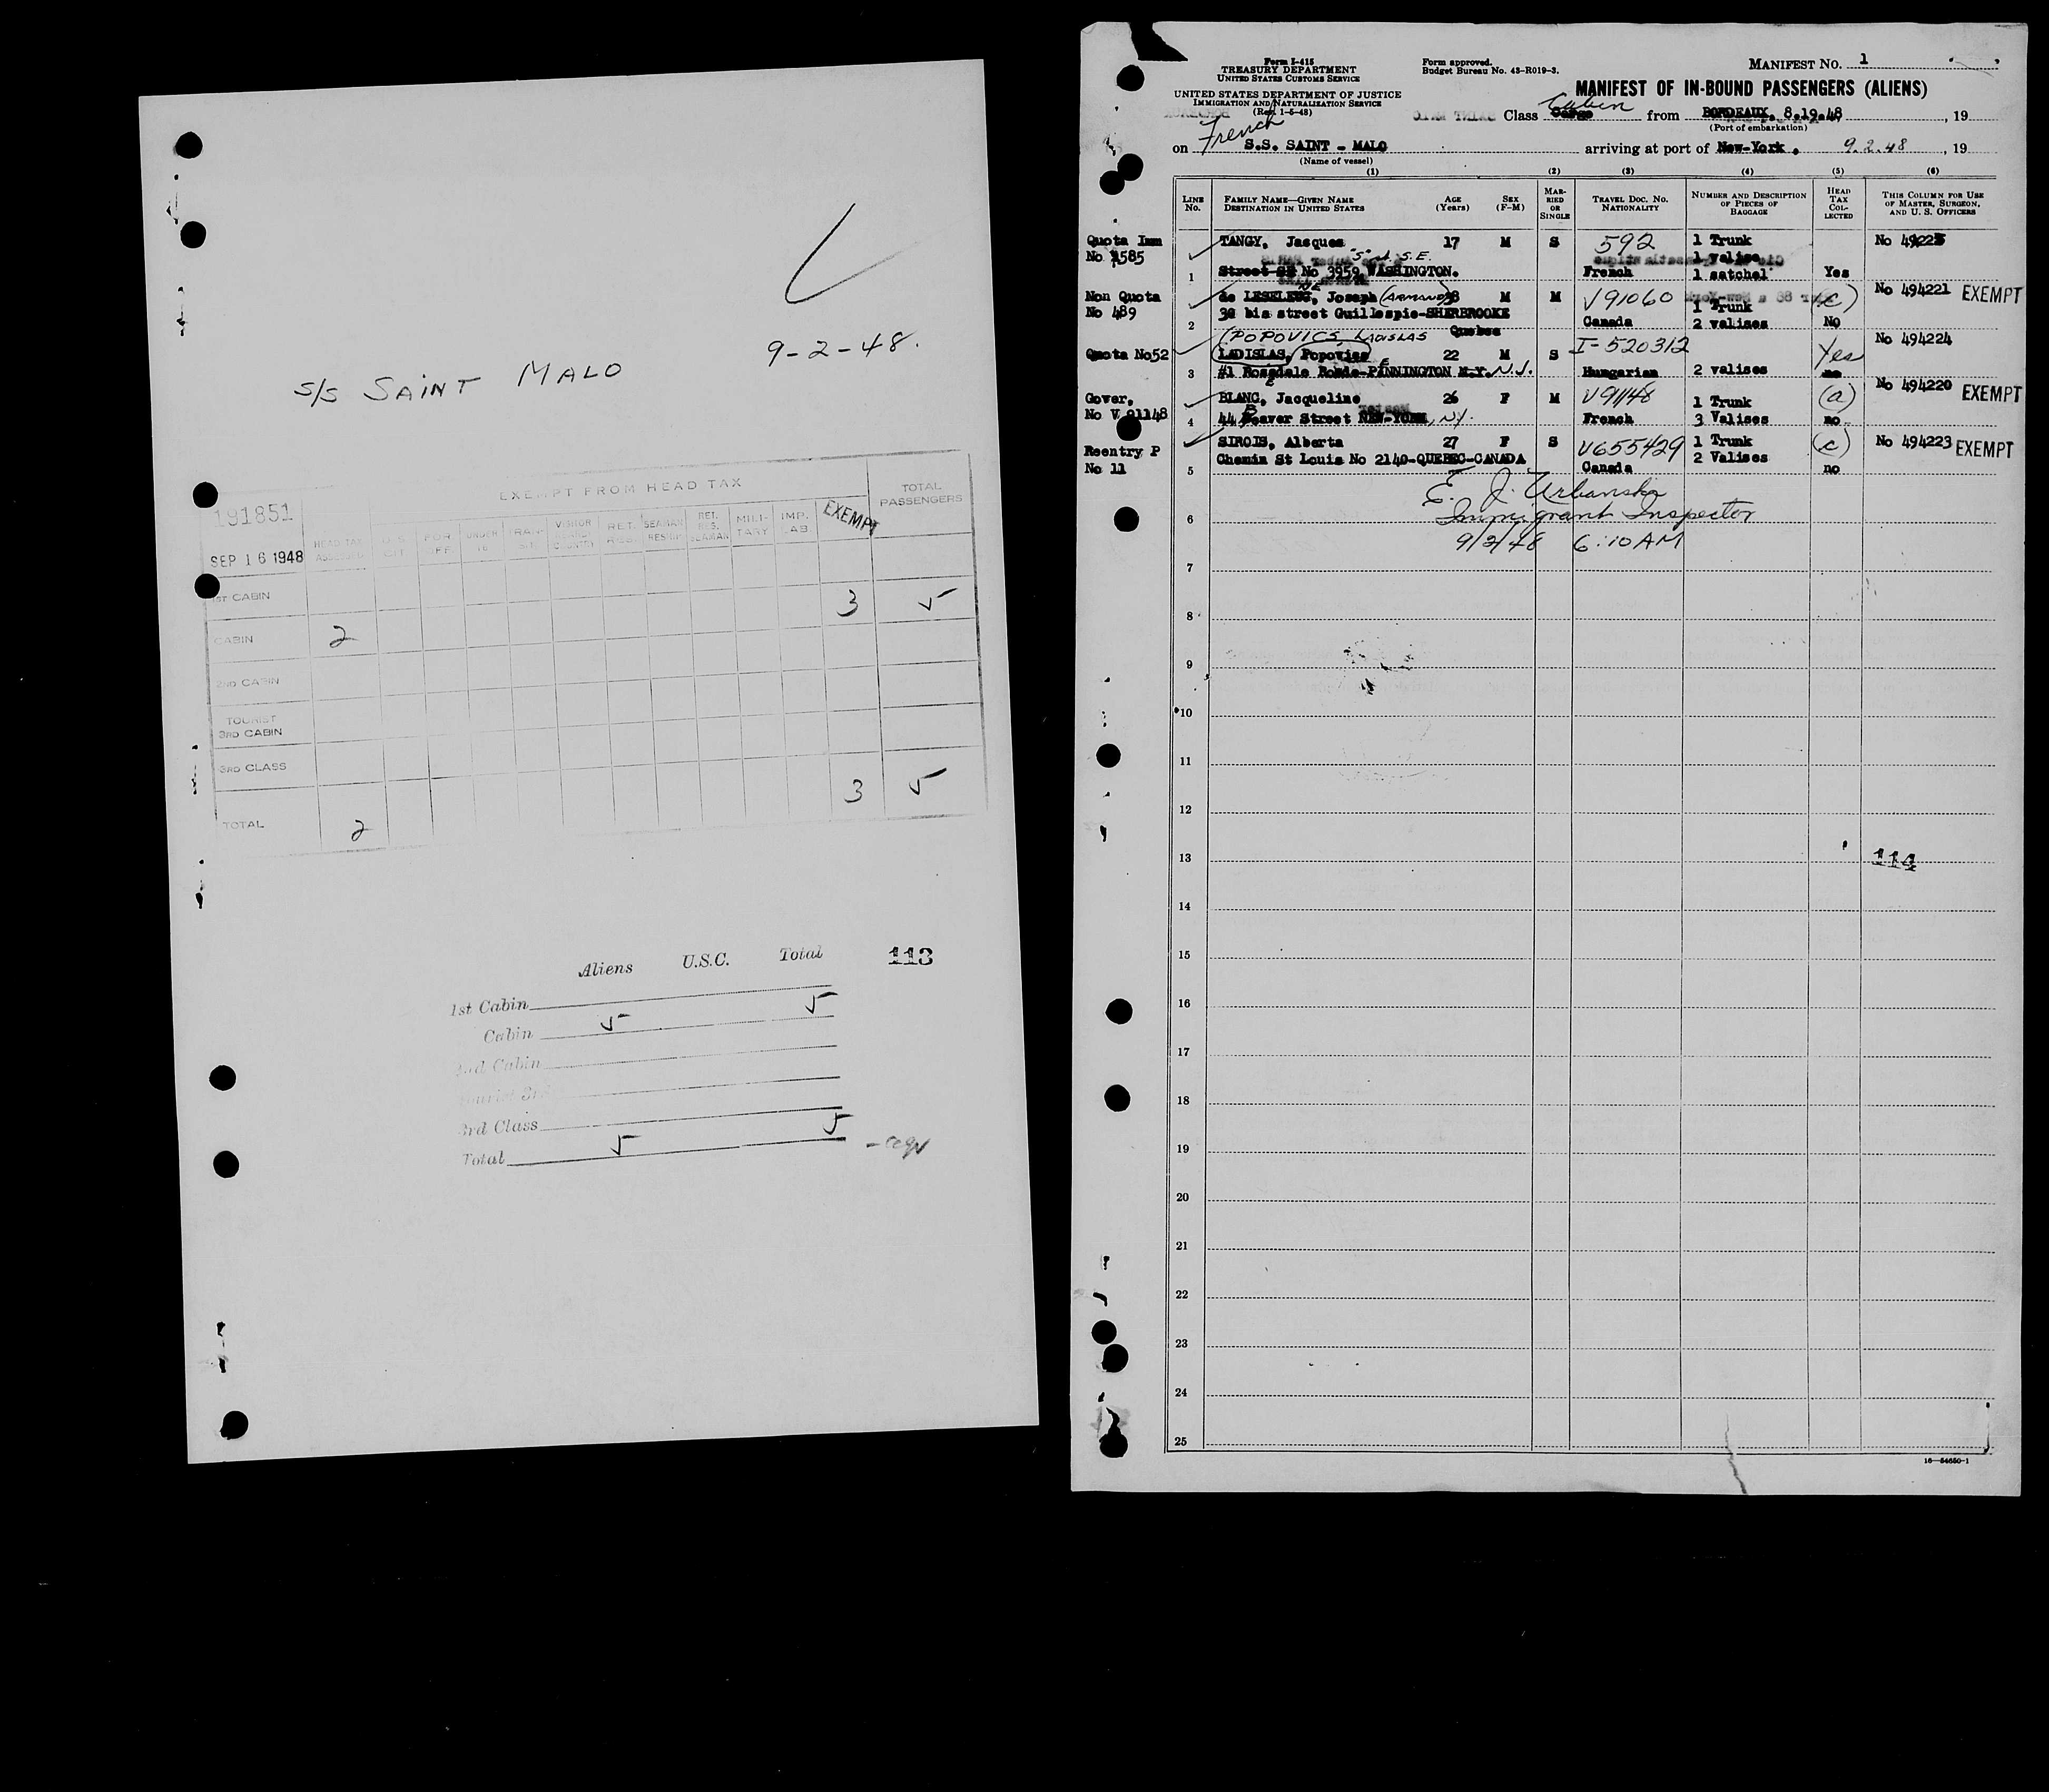 S/S SAINT MALO
9-2-48.
EXEMPT FROM HEAD TAX
TOTAL PASSENGERS
191851
SEP 16 1948
HEAD TAX ASSESSED
U.S. CIT.
UNDER 16
VISITOR
COUNTRY
SEAMAN
RET. RES. SEAMAN
MILI-TARY
IMP. LAB
EXEMPT
1ST CABIN
3 5
CABIN 2
2ND CABIN
TOURIST
3RD CABIN
3RD CLASS
TOTAL 2 3 5
Aliens U.S.C. Total
113
1st Cabin
Cabin 5 5
2nd Cabin
Tourist 3rd
3rd Class
Total 5 5
Form I-415
TREASURY DEPARTMENT
UNITED STATES CUSTOMS SERVICE
UNITED STATES DEPARTMENT OF JUSTICE
IMMIGRATION AND NATURALIZATION SERVICE
(Rev. 1-5-48)
Form approved.
Budget Bureau No. 43-R019-3.
MANIFEST NO. 1
MANIFEST OF IN-BOUND PASSENGERS (ALIENS)
Class Cargo Cabin from BORDEAUX. 8.19.48, 19
(Port of embarkation)
on French S.S. SAINT - MALO arriving at port of New-York. 9.2.48, 19
(Name of vessel)
(1) (2) (3) (4) (5) (6)
LINE No.
FAMILY NAME—GIVEN NAME
DESTINATION IN UNITED STATES
AGE (Years)
SEX (F-M)
MAR-RIED OR SINGLE
TRAVEL DOC. NO.
NATIONALITY
NUMBER AND DESCRIPTION OF PIECES OF BAGGAGE
HEAD TAX COL-LECTED
THIS COLUMN FOR USE OF MASTER, SURGEON, AND U. S. OFFICERS
Quota Imm TANGY, Jacques 17 M S 592 1 Trunk
No 1585 "S" St. S.E. 1 valise
1 Street SE No 3959 WASHINGTON. French 1 satchel Yes
Non Quota de LESELEUC, Joseph (ARMAND) M M V91060 1 Trunk (c) No 494221 EXEMPT
No 489 38 bis street Guillespie-SHERBROOKE
2 Quebec Canada 2 valises No
(POPOVICS, LADISLAS
Quota No52 LADISLAS, Popovics 22 M S I-520312 Yes No 494224
3 #1 Rosedale Roade-PENNINGTON N.Y. N.J. Hungarian 2 valises no
Gover. BLANC, Jacqueline 26 F M V91148 1 Trunk (a) No 494220 EXEMPT
No V 91148 4 44 Beaver Street NEW-YORK, N.Y. French 3 Valises no
Reentry P SIROIS, Alberta 27 F S V655429 1 Trunk (c) No 494223 EXEMPT
No 11 5 Chemin St Louis No 2140-QUEBEC-CANADA Canada 2 Valises no
E. J. Urbanski
6 Immigrant Inspector
9/2/48 6:10 AM
7
8
9
10
11
12
13 114
14
15
16
17
18
19
20
21
22
23
24
25
16—54650-1